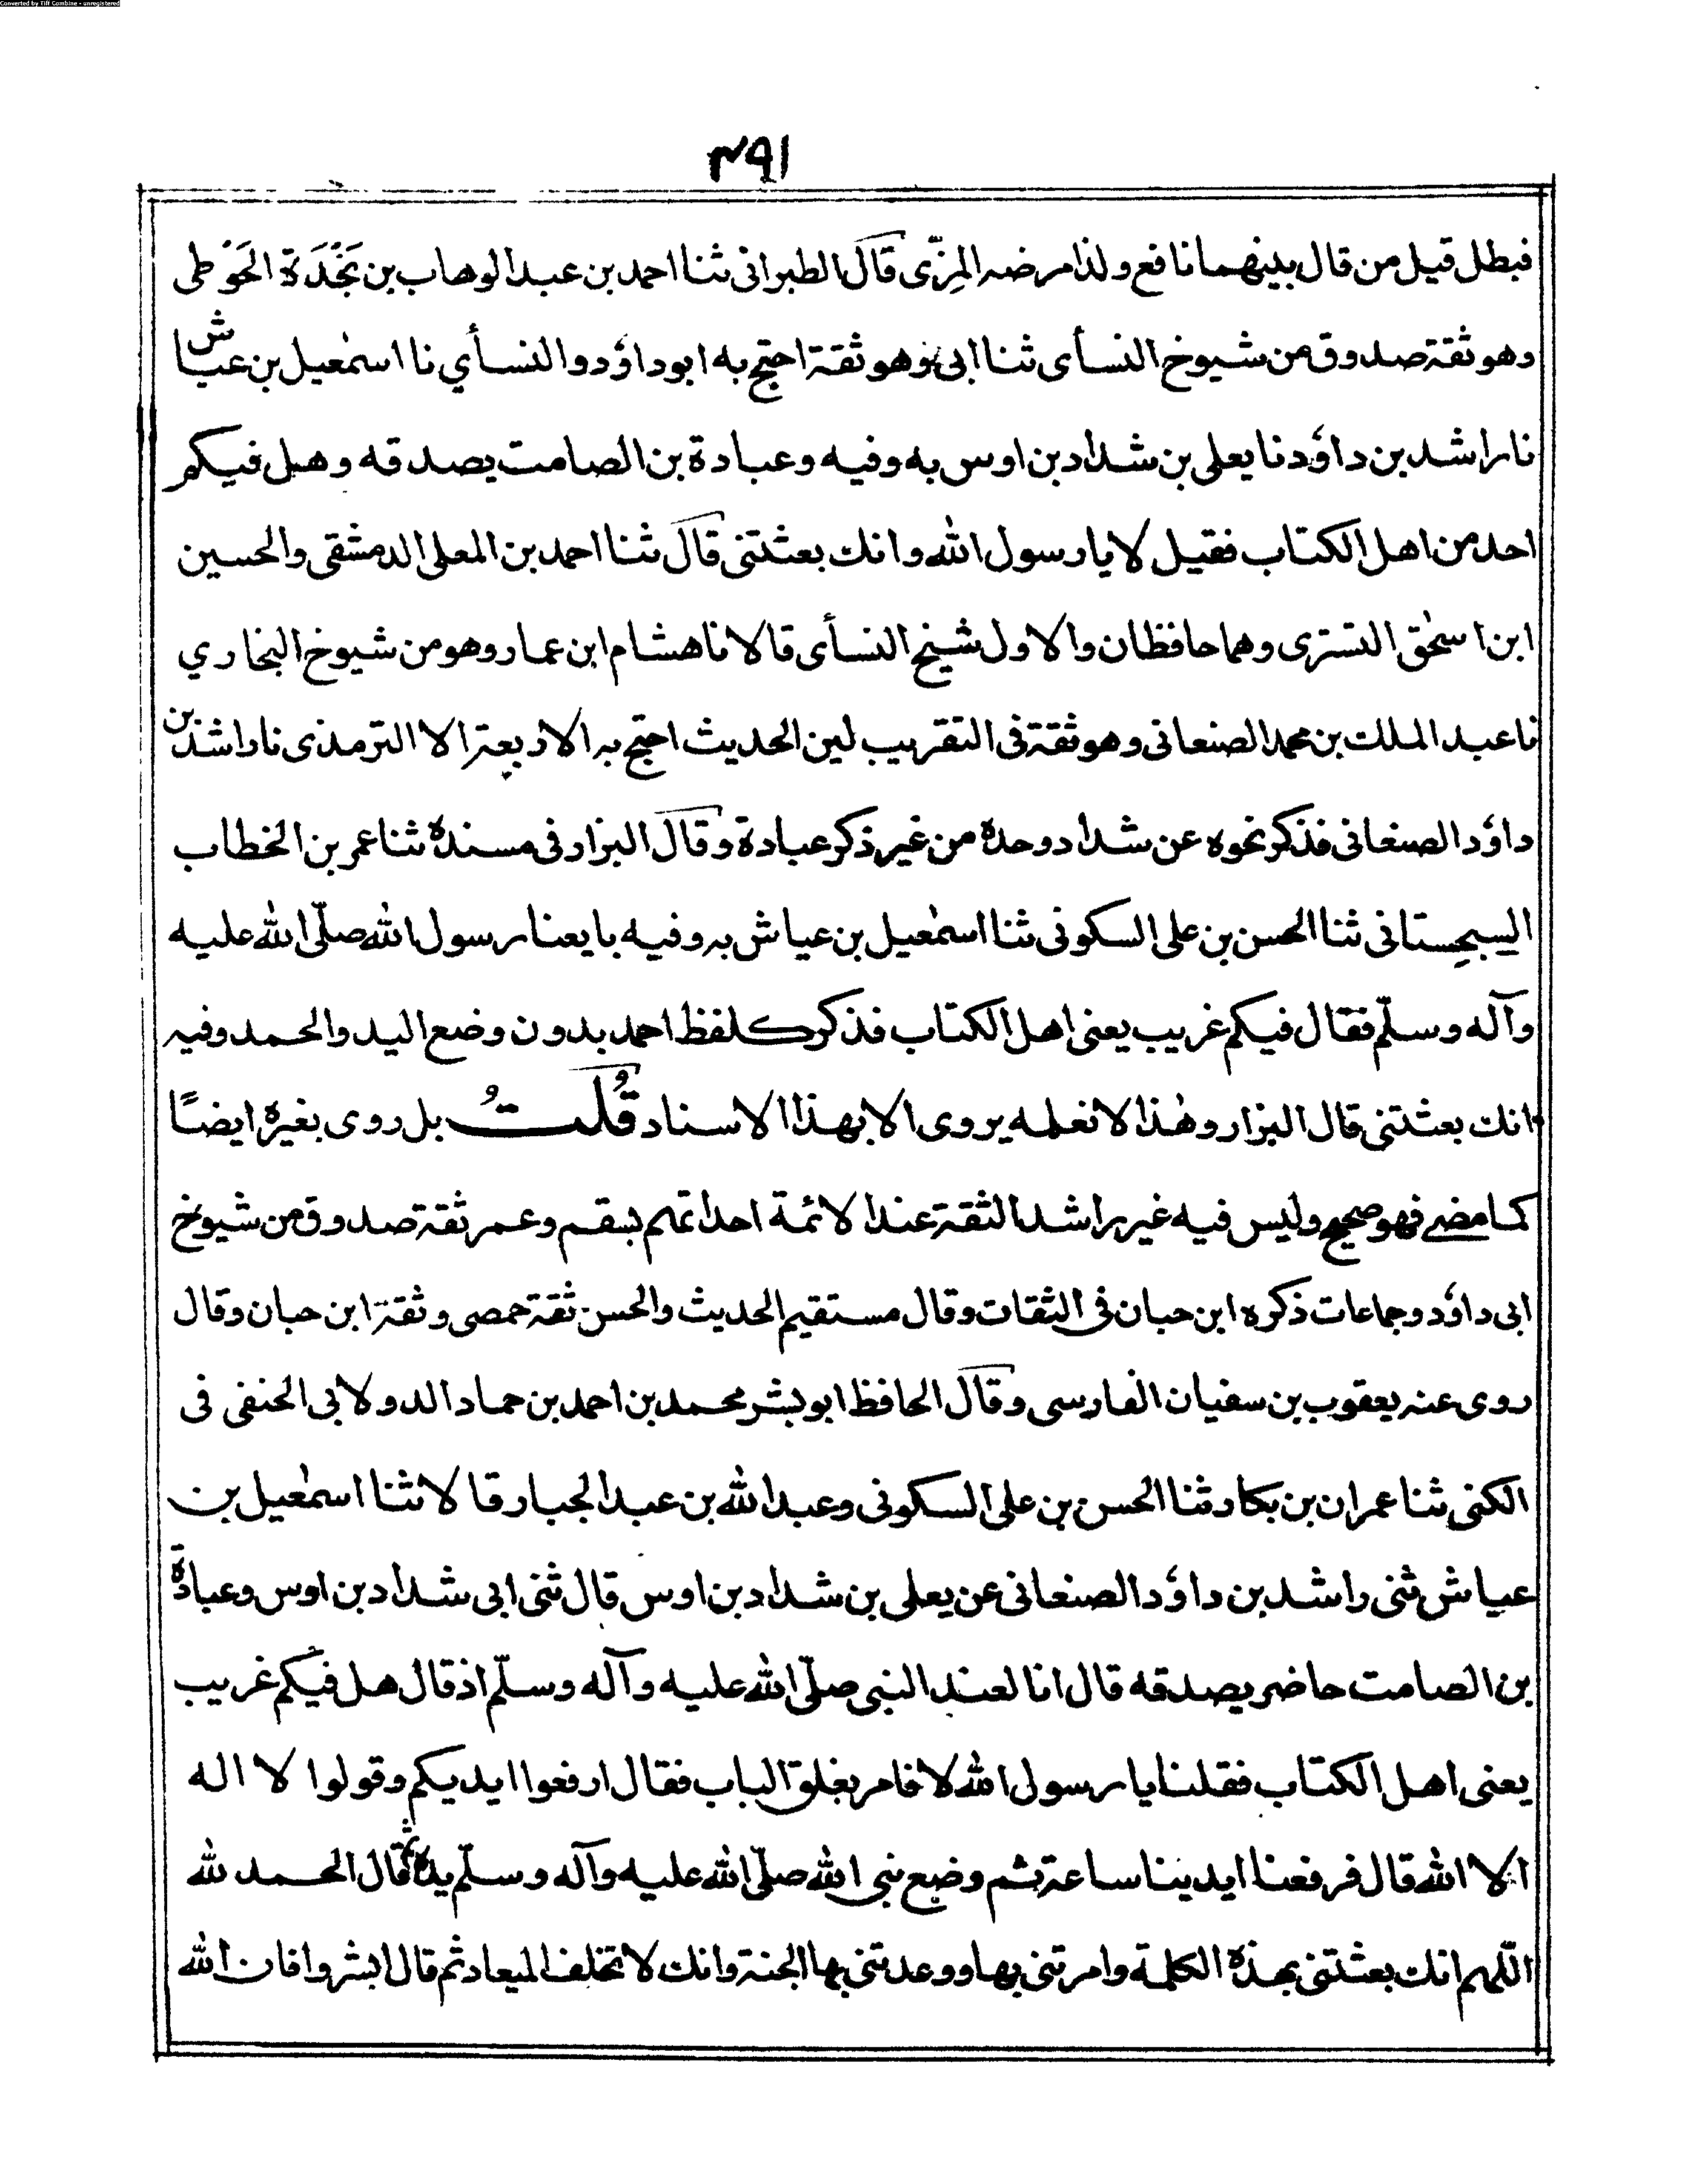 Converted by Tiff Combine - unregistered
٣٩١
فبطل قيل من قال بينهما نافع ولذا مرضه المِزّى قال الطبرانى ثنا احمد بن عبد الوهاب بن نَجْدَة الحَوْطى
وهو ثقة صدوق من شيوخ النسأى ثنا ابى وهو ثقة احتج به ابو داوٗد والنسأي نا اسمٰعيل بن عياش
نا راشد بن داوٗد نا يعلى بن شداد بن اوس به وفيه وعبادة بن الصامت يصدقه وهل فيكم
احد من اهل الكتاب فقيل لا يا رسول الله وانك بعثتنى قال ثنا احمد بن المعلى الدمشقى والحسين
ابن اسحٰق التسترى وهما حافظان والاول شيخ النسأى قالا نا هشام ابن عمار وهو من شيوخ البخاري
نا عبد الملك بن محمد الصنعانى وهو ثقة فى التقريب لين الحديث احتج به الاربعة الا الترمذى نا راشد بن
داوٗد الصنعانى فذكر نحوه عن شداد وحده من غير ذكر عبادة وقال البزار فى مسنده ثنا عمر بن الخطاب
السِجِستانى ثنا الحسن بن على السكونى ثنا اسمٰعيل بن عياش به وفيه بايعنا رسول الله صلّى الله عليه
وآله وسلّم فقال فيكم غريب يعنى اهل الكتاب فذكر كلفظ احمد بدون وضع اليد والحمد وفيه
انك بعثتنى قال البزار وهٰذا لا نعلمه يروى الا بهذا الاسناد قُلتُ بل روى بغيره ايضًا
كما مضے فهو صحيح وليس فيه غير راشد الثقة عند الائمة احد اتهم بسقم وعمر ثقة صدوق من شيوخ
ابى داوٗد وجماعات ذكره ابن حبان فى الثقات وقال مستقيم الحديث والحسن ثقة حمصى وثقة ابن حبان وقال
روى عنه يعقوب بن سفيان الفارسى وقال الحافظ ابو بشر محمد بن احمد بن حماد الدولابى الحنفى فى
الكنى ثنا عمران بن بكار ثنا الحسن بن على السكونى وعبد الله بن عبد الجبار قالا ثنا اسمٰعيل بن
عياش ثنى راشد بن داوٗد الصنعانى عن يعلى بن شداد بن اوس قال ثنى ابى شداد بن اوس وعبادة
بن الصامت حاضر يصدقه قال انا لعند النبى صلّى الله عليه وآله وسلّم اذ قال هل فيكم غريب
يعنى اهل الكتاب فقلنا يا رسول الله لا فامر بغلق الباب فقال ارفعوا ايديكم وقولوا لا اله
الا الله قال فرفعنا ايدينا ساعة ثم وضع نبى الله صلّى الله عليه وآله وسلّم يده ثم قال الحمد لله
اللّٰهم انك بعثتنى بهذه الكلمة وامرتنى بها ووعدتنى بها الجنة وانك لا تخلف الميعاد ثم قال ابشروا فان الله